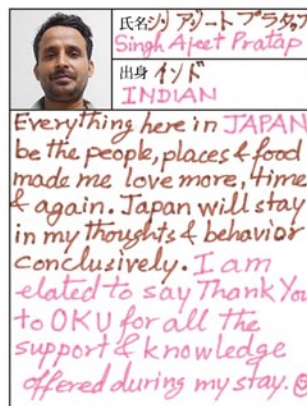 氏名シン アジート プラタップ
Singh Ajeet Pratap
出身 インド
INDIAN
Everything here in JAPAN
be the people, places & food
made me love more, time
& again. Japan will stay
in my thoughts & behavior
conclusively. I am
elated to say Thank You
to OKU for all the
support & knowledge
offered during my stay. ☺